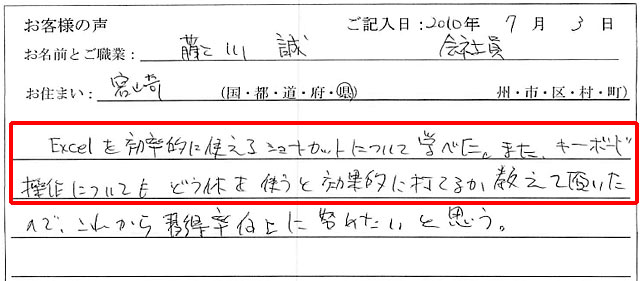 お客様の声 ご記入日：2010年 7月 3日
お名前とご職業： 藤川 誠 会社員
お住まい： 宮崎 （国・都・道・府・県） 州・市・区・村・町）
Excelを効率的に使えるショートカットについて学べた。また、キーボード
操作についても どう体を使うと効果的に打てるか教えて頂いた
ので、これから習得率向上に努めたいと思う。